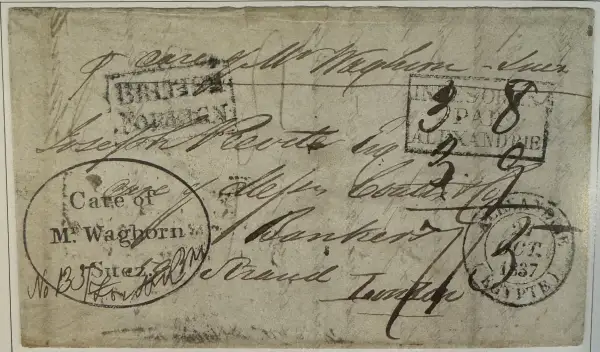 p care of Mr Waghorn Suez
BRITISH
FOREIGN
PAR
ALEXANDRIE
3 8
Joseph Esq
3
care of Messrs Coutts & Co
Bankers
Strand
London
Care of
Mr. Waghorn
Suez
No 133
ALEXANDRIE
OCT.
1837
(EGYPTE)